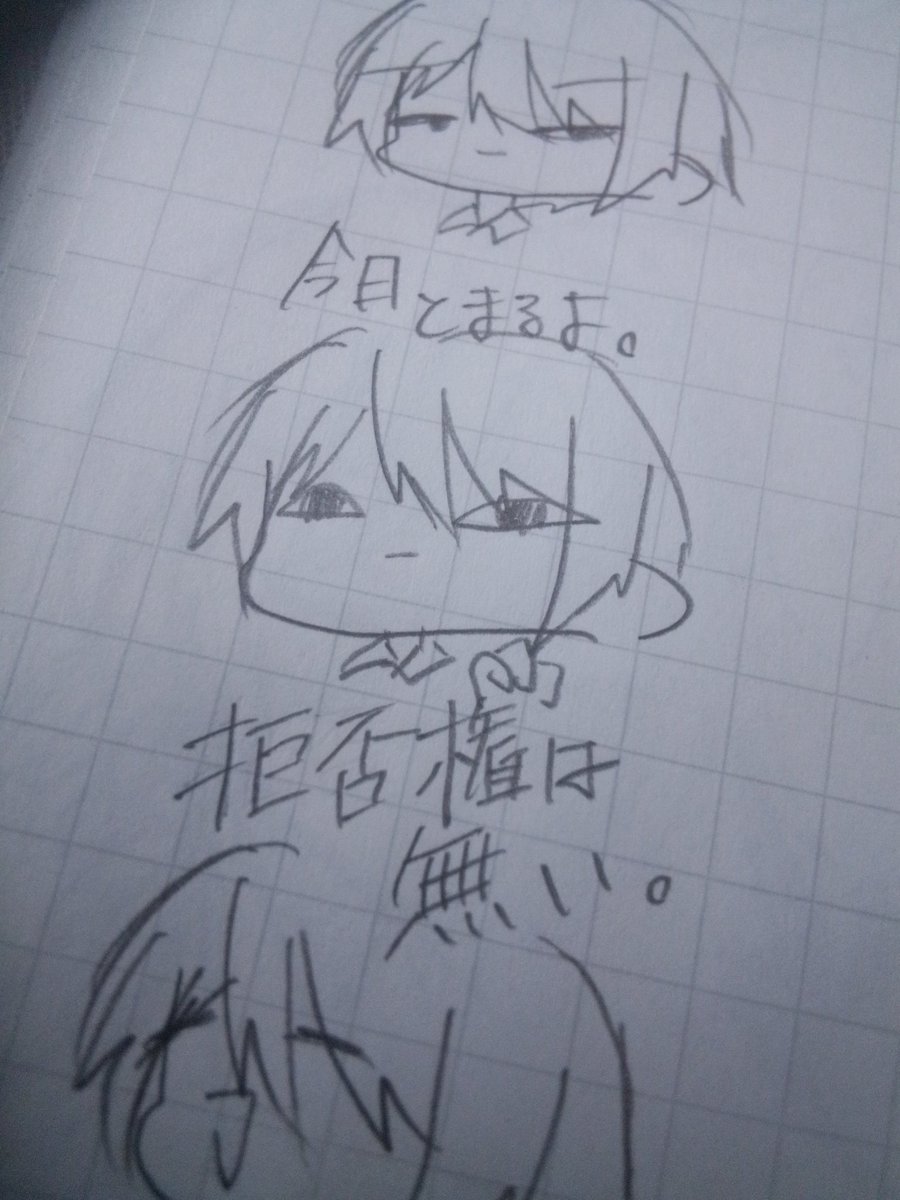 今日とまるよ。
拒否権は
無い。